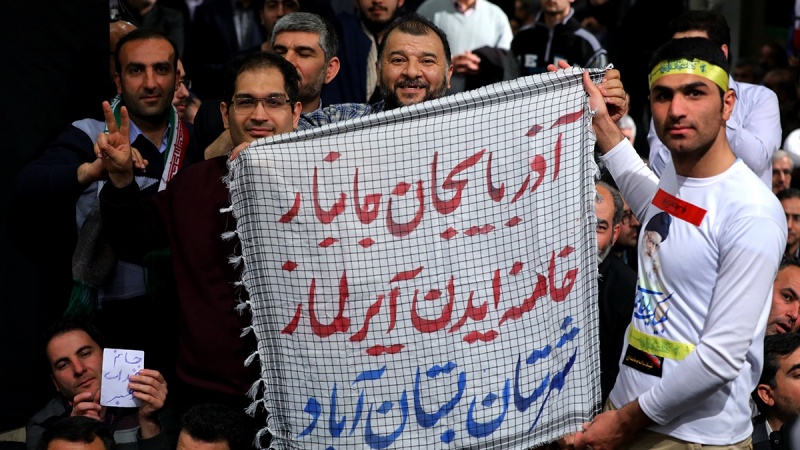 آذربایجان جانباز
خامنه ایدن آیرلماز
شهرستان بستان آباد
جانم
رهبر